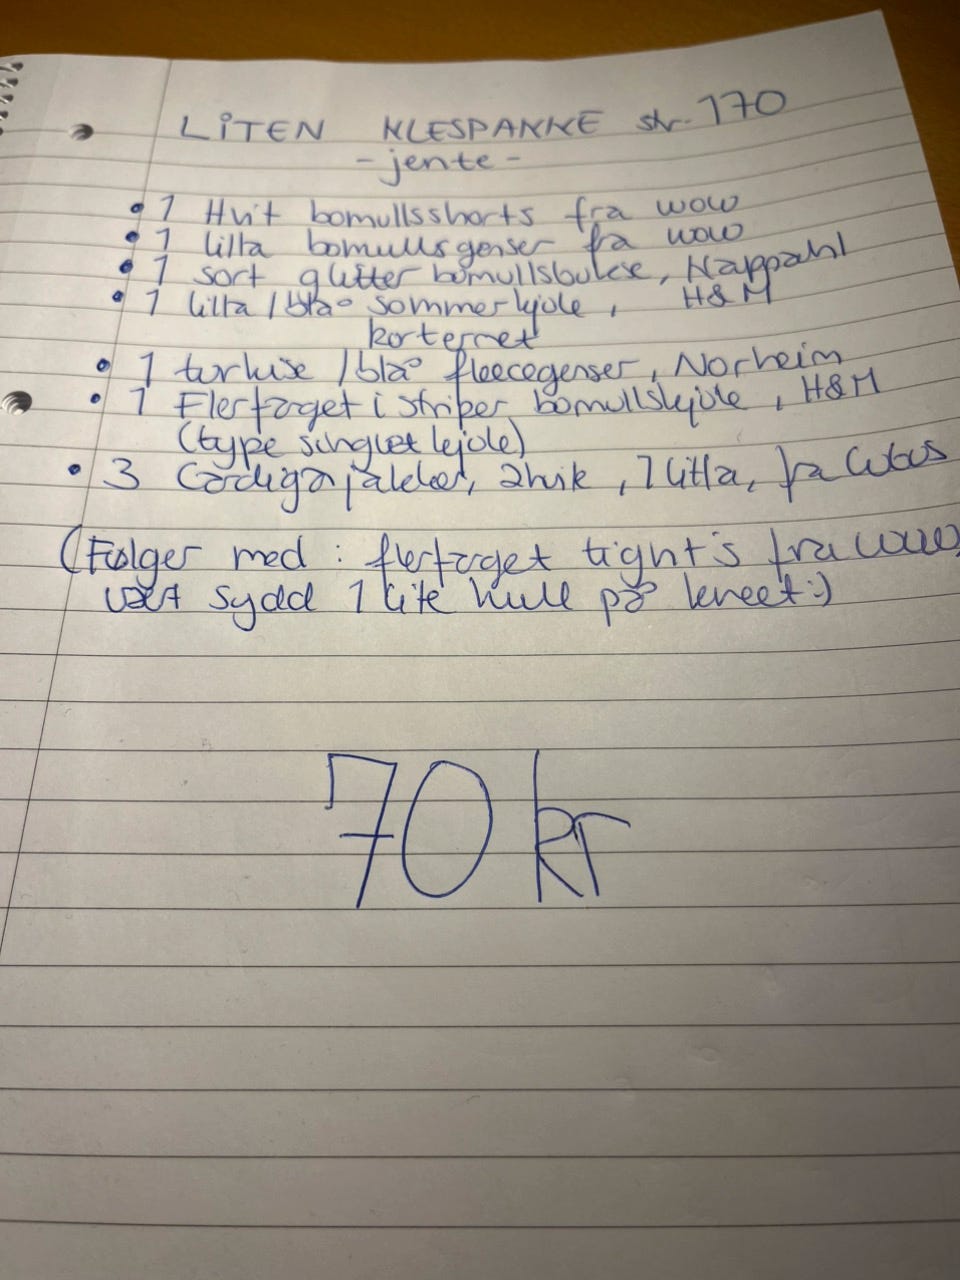 LITEN KLESPAKKE str. 170
- jente -
• 1 Hvit bomullsshorts fra wow
• 1 lilla bomullsgenser fra wow
• 1 sort glitter bomullsbukse, Kappahl
• 1 lilla / blå sommerkjole, H&M
korternet
• 1 turkise / blå fleecegenser, Norheim
• 1 Flerfarget i striper bomullskjole, H&M
(type singlet kjole)
• 3 Cardigajakker, 2 hvit, 1 lilla, fra Cubus
(Følger med : flerfarget tight's fra wow,
vært sydd 1 lite hull på kneet:)
70 kr